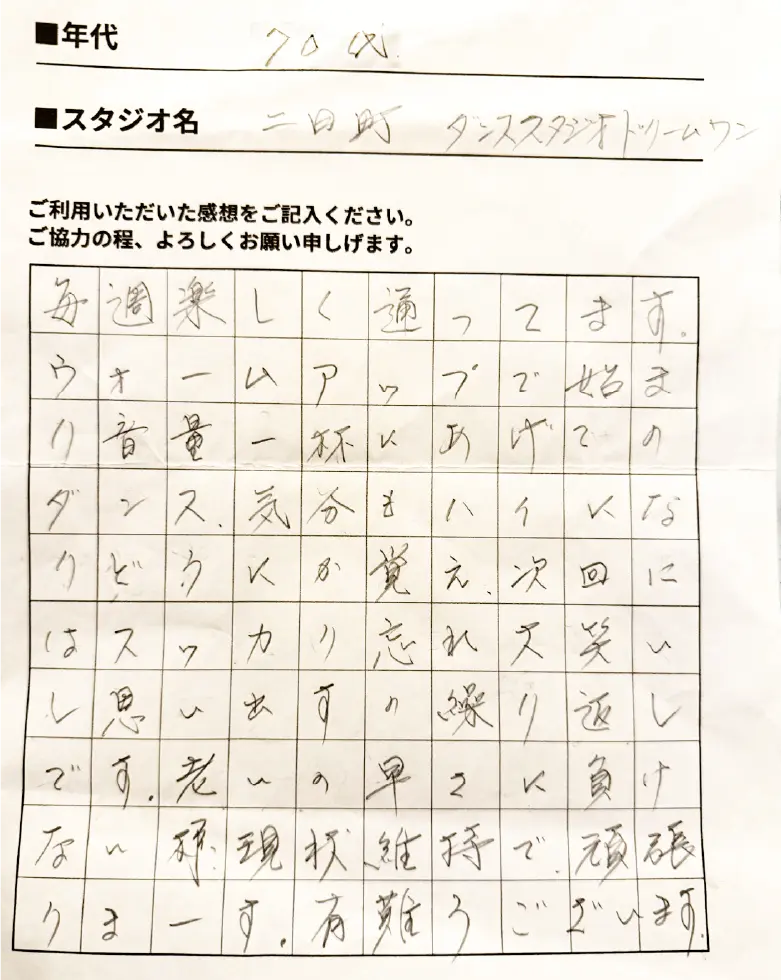 ■年代 70代
■スタジオ名 二日町 ダンススタジオドリームワン
ご利用いただいた感想をご記入ください。
ご協力の程、よろしくお願い申しげます。
毎週楽しく通ってます。
ウォームアップで始ま
り音量一杯にあげての
ダンス、気分もハイにな
りどうにか覚え、次回に
はスッカリ忘れ大笑い
し思い出すの繰り返し
です。老いの早さに負け
ない様現状維持で、頑張
りまーす。有難うございます。